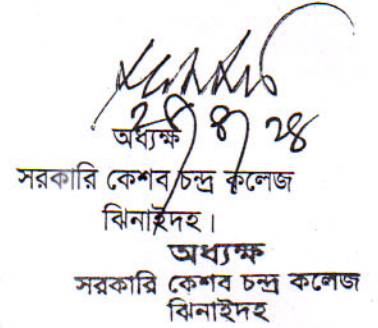 অধ্যক্ষ
সরকারি কেশব চন্দ্র কলেজ
ঝিনাইদহ।
অধ্যক্ষ
সরকারি কেশব চন্দ্র কলেজ
ঝিনাইদহ